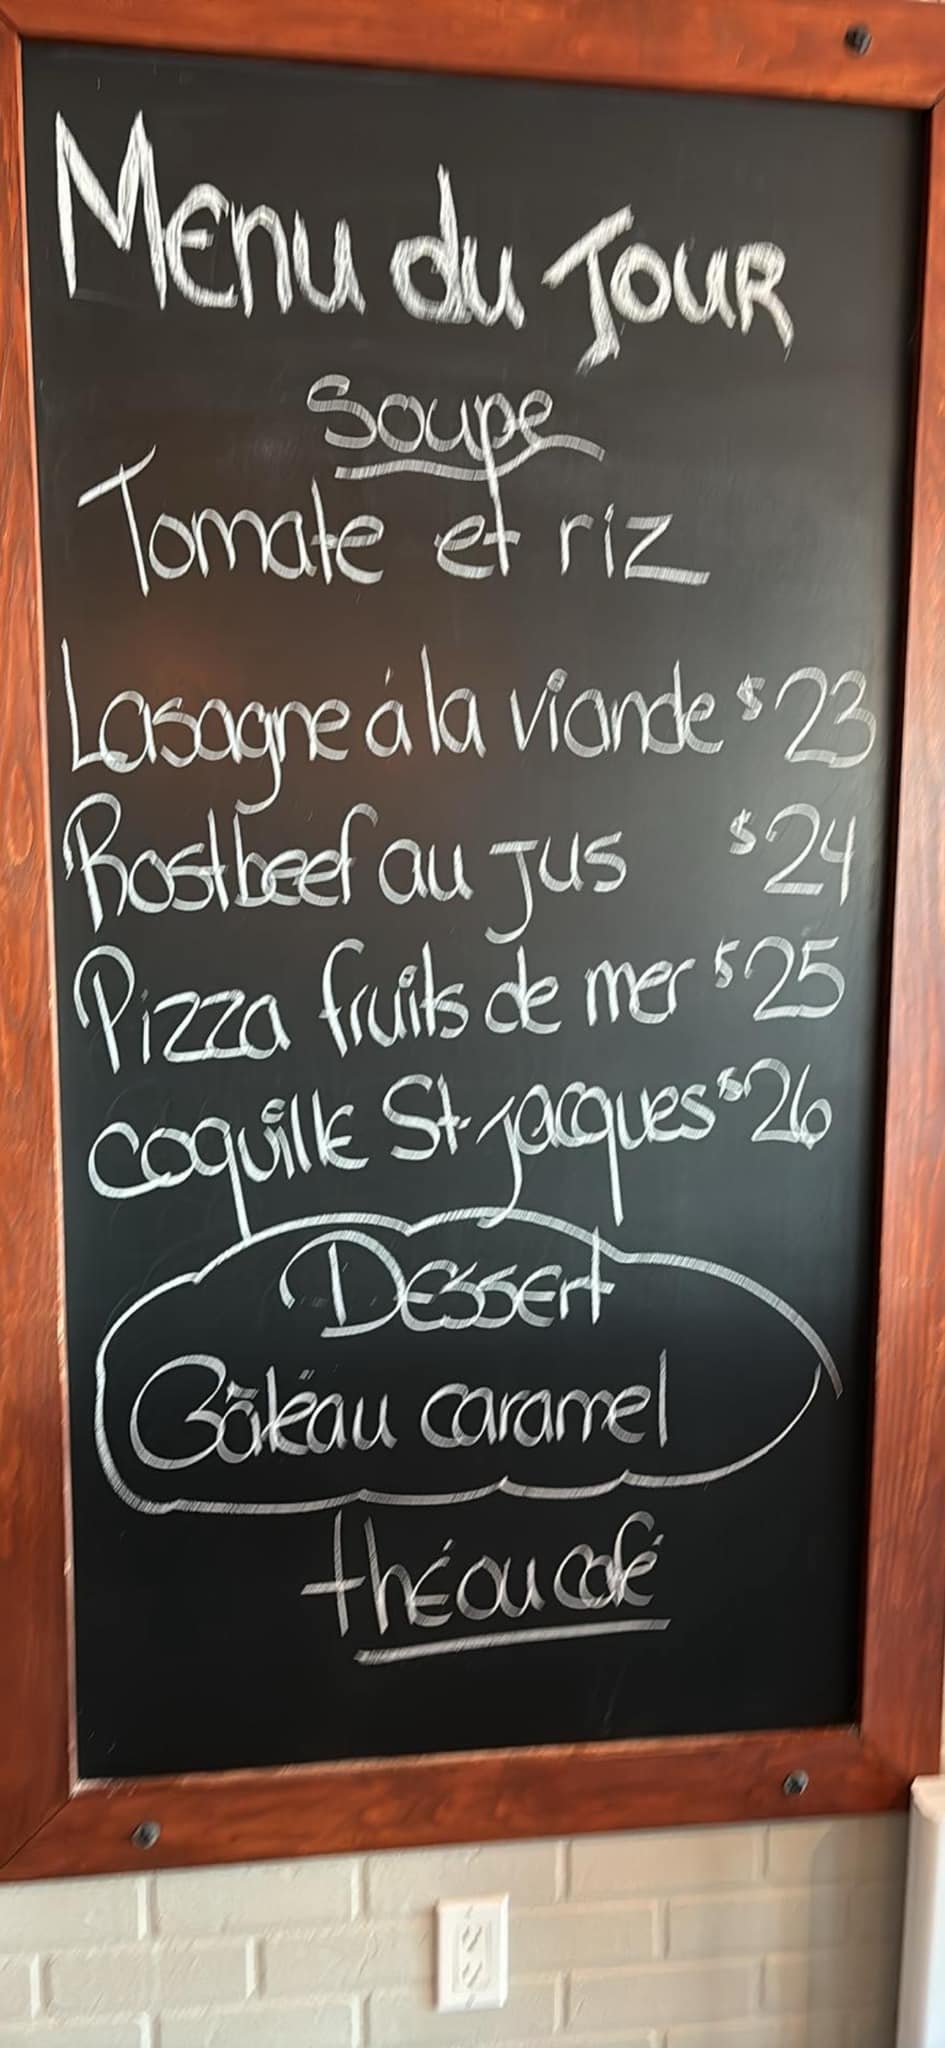 Menu du JOUR
Soupe
Tomate et riz
Lasagne á la viande $23
Rostbeef au jus $24
Pizza fruits de mer $25
coquille St-jacques $26
Dessert
Gâteau caramel
thé ou café